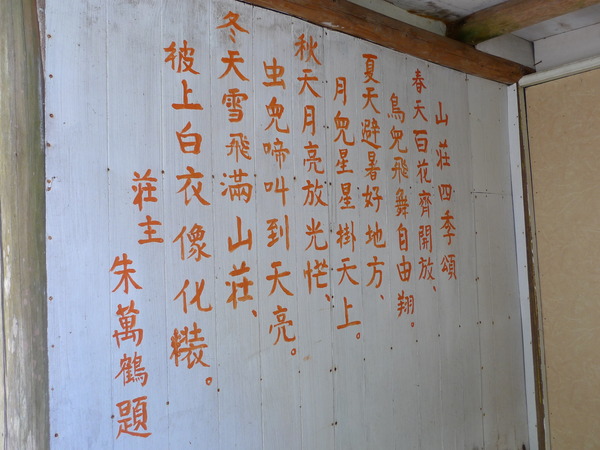 山莊四季頌
春天百花齊開放、
鳥兒飛舞自由翔。
夏天避暑好地方、
月兒星星掛天上。
秋天月亮放光茫、
虫兒啼叫到天亮。
冬天雪飛滿山莊、
披上白衣像化糚。
莊主
朱萬鶴題